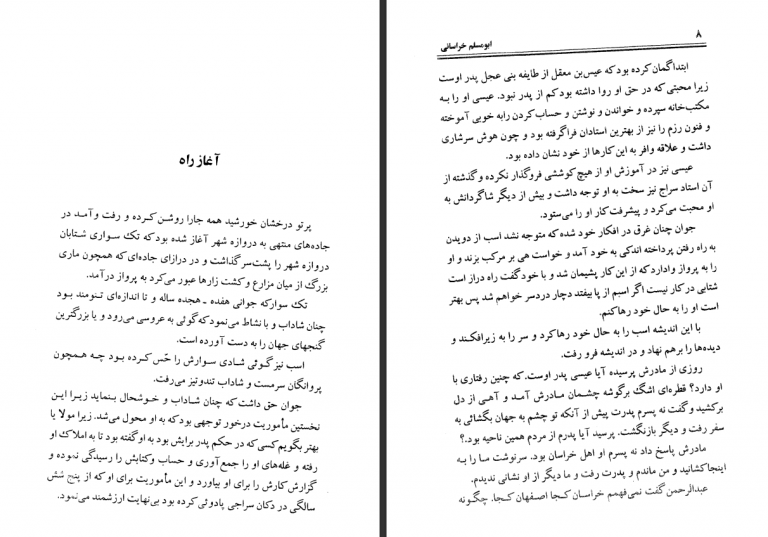 آغاز راه
پرتو درخشان خورشید همه جارا روشن کرده و رفت وآمد در
جاده‌های منتهی به دروازه شهر آغاز شده بود که تک سواری شتابان
دروازه شهر را پشت‌سر گذاشت و در درازای جاده‌ای که همچون ماری
بزرگ از میان مزارع و کشت زارها عبور می‌کرد به پرواز درآمد.
تک سوار که جوانی هفده ـ هجده ساله و تا اندازه‌ای تنومند بود
چنان شاداب و با نشاط می‌نمود که گوئی به عروسی می‌رود و یا بزرگترین
گنجهای جهان را به دست آورده است.
اسب نیز گوئی شادی سوارش را حّس کرده بود چه همچون
پروانگان سرمست و شاداب تندو تیز می‌رفت.
جوان حق داشت که چنان شاداب و خوشحال بنماید زیرا این
نخستین مأموریت درخور توجهی بود که به او محول می‌شد. زیرا مولا یا
بهتر بگویم کسی که در حکم پدر برایش بود به او گفته بود تا به املاک او
رفته و غله‌های او را جمع‌آوری و حساب وکتابش را رسیدگی نموده و
گزارش کارش را برای او بیاورد و این مأموریت برای او که از پنج شش
سالگی در دکان سراجی پادوئی کرده بود بی‌نهایت ارزشمند می‌نمود.
۸
ابومسلم خراسانی
ابتداگمان کرده بود که عیسی‌بن معقل از طایفه بنی عجل پدر اوست
زیرا محبتی که در حق او روا داشته بود کم از پدر نبود. عیسی او را به
مکتب‌خانه سپرده و خواندن و نوشتن و حساب کردن رابه خوبی آموخته
و فنون رزم را نیز از بهترین استادان فراگرفته بود و چون هوش سرشاری
داشت و علاقه وافر به این کارها از خود نشان داده بود.
عیسی نیز در آموزش او از هیچ کوششی فروگذار نکرده و گذشته از
آن استاد سراج نیز سخت به او توجه داشت و بیش از دیگر شاگردانش به
او محبت می‌کرد و پیشرفت کار او را می‌ستود.
جوان چنان غرق در افکار خود شده که متوجه نشد اسب از دویدن
به راه رفتن پرداخته اندکی به خود آمد و خواست هی بر مرکب بزند و او
را به پرواز وادارد که از این کار پشیمان شد و با خود گفت راه دراز است
شتابی در کار نیست اگر اسبم از پا بیفتد دچار دردسر خواهم شد پس بهتر
است او را به حال خود رهاکنم.
با این اندیشه اسب را به حال خود رهاکرد و سر را به زیرافکند و
دیده‌ها را برهم نهاد و در اندیشه فرو رفت.
روزی از مادرش پرسیده آیا عیسی پدر اوست. که چنین رفتاری با
او دارد؟ قطره‌ای اشگ برگوشه چشمان مادرش آمد و آهی از دل
برکشید و گفت نه پسرم پدرت پیش از آنکه تو چشم به جهان بگشائی به
سفر رفت و دیگر بازنگشت. پرسید آیا پدرم از مردم همین ناحیه بود.؟
مادرش پاسخ داد نه پسرم او اهل خراسان بود. سرنوشت ما را به
اینجاکشانید و من ماندم و پدرت رفت و ما دیگر از او نشانی ندیدم.
عبدالرحمن گفت نمی‌فهمم خراسان کجا اصفهان کجا. چگونه